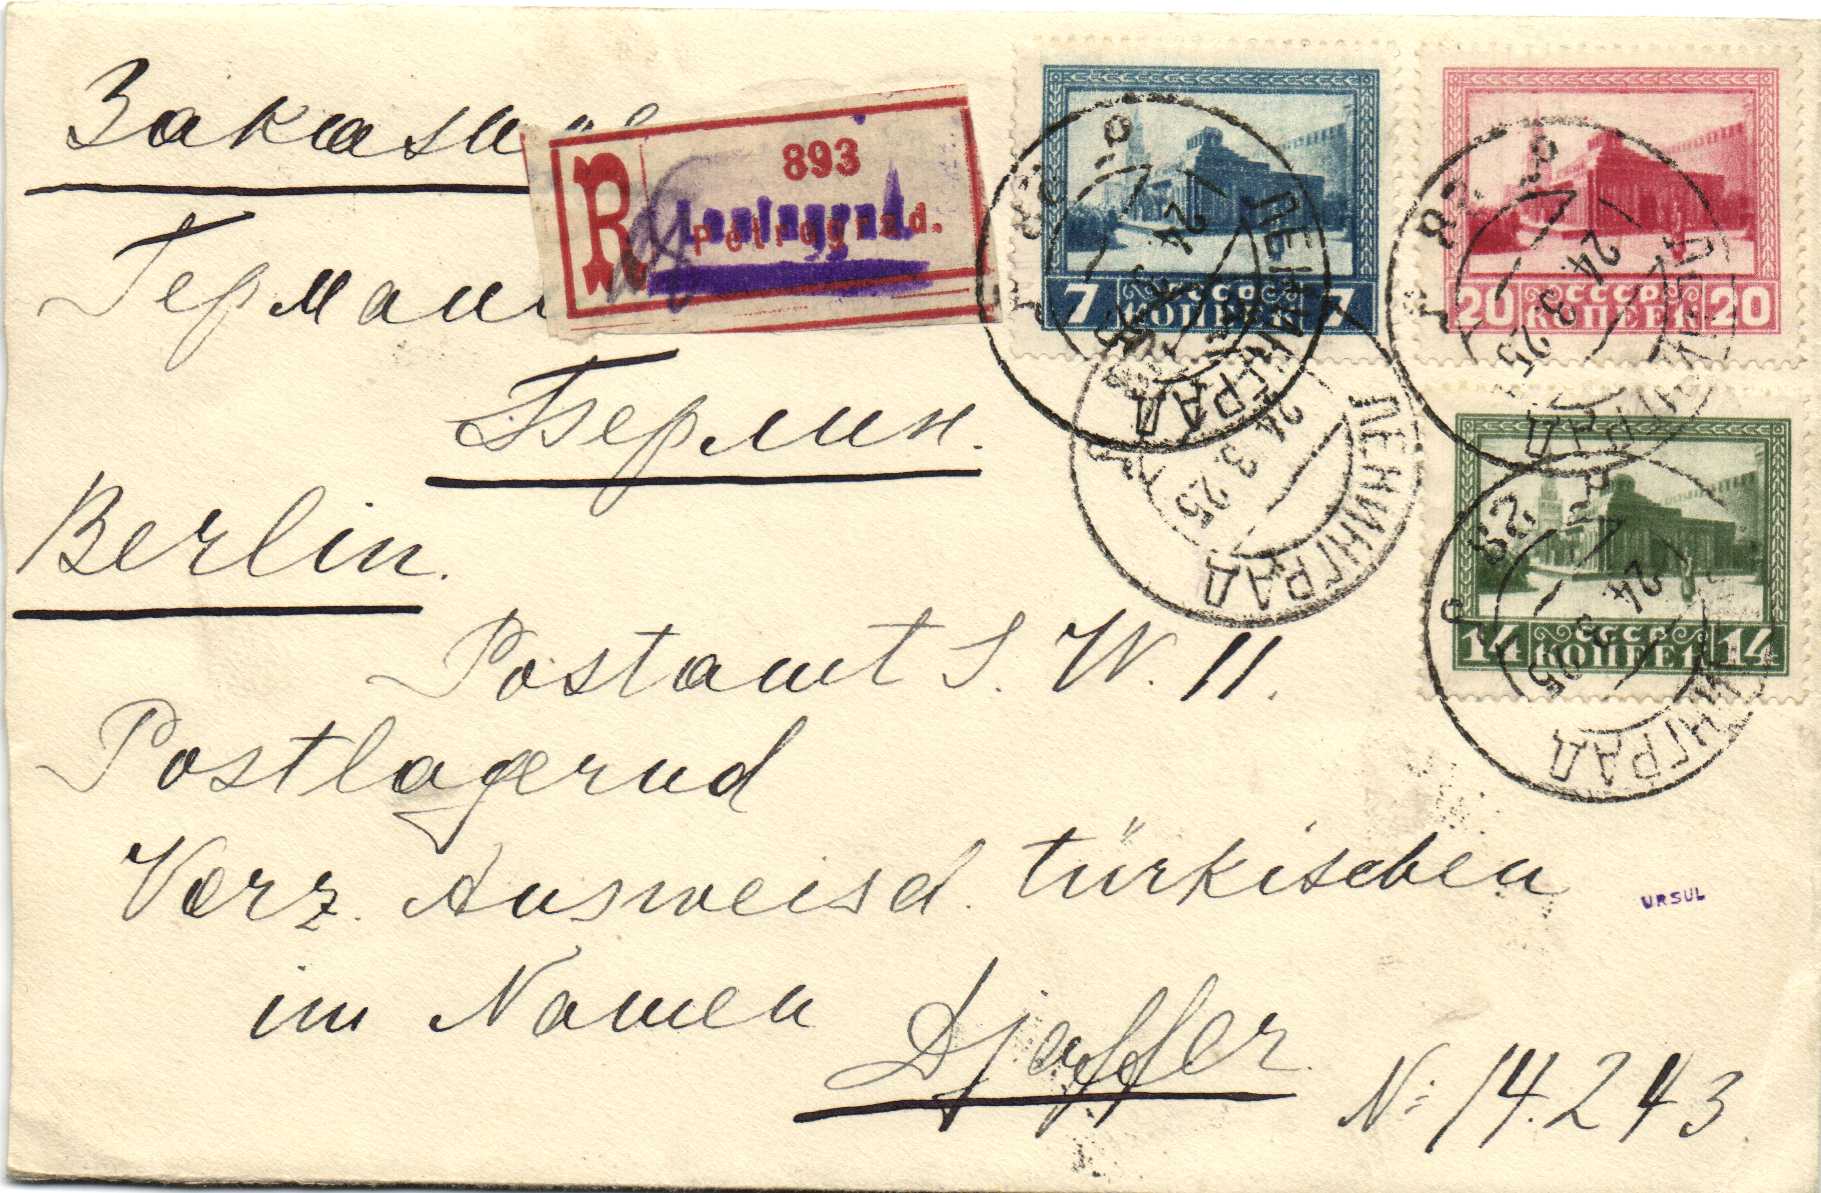 Заказн
R
893
Petrograd.
Leningrad
Герман
Берлин.
Berlin.
Postamt S. W. 11.
Postlagernd
Vorz. Ausweisd. türkischen
im Namen Djaffer.
N: 14.243.
URSUL
7 СССР КОПЕЕК 7
20 СССР КОПЕЕК 20
14 СССР КОПЕЕК 14
ЛЕНИНГРАД
24 3 25
ЛЕНИНГРАД
24.3.25
ЛЕНИНГРАД
24.3.25
28
ЛЕНИНГРАД
24 3 25
28